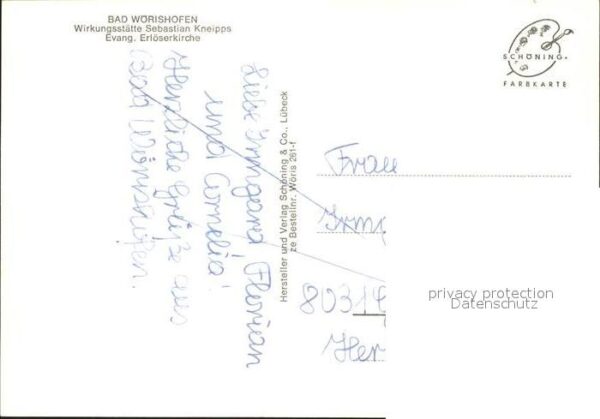 BAD WÖRISHOFEN
Wirkungsstätte Sebastian Kneipps
Evang. Erlöserkirche
SCHÖNING+
FARBKARTE
Liebe Irmgard, Florian
und Cornelia!
Herzliche Grüße aus
Bad Wörishofen.
Hersteller und Verlag Schöning & Co., Lübeck
ze Bestellnr. Wöris 261-f
Frau
Irmg
80314
Her
privacy protection
Datenschutz